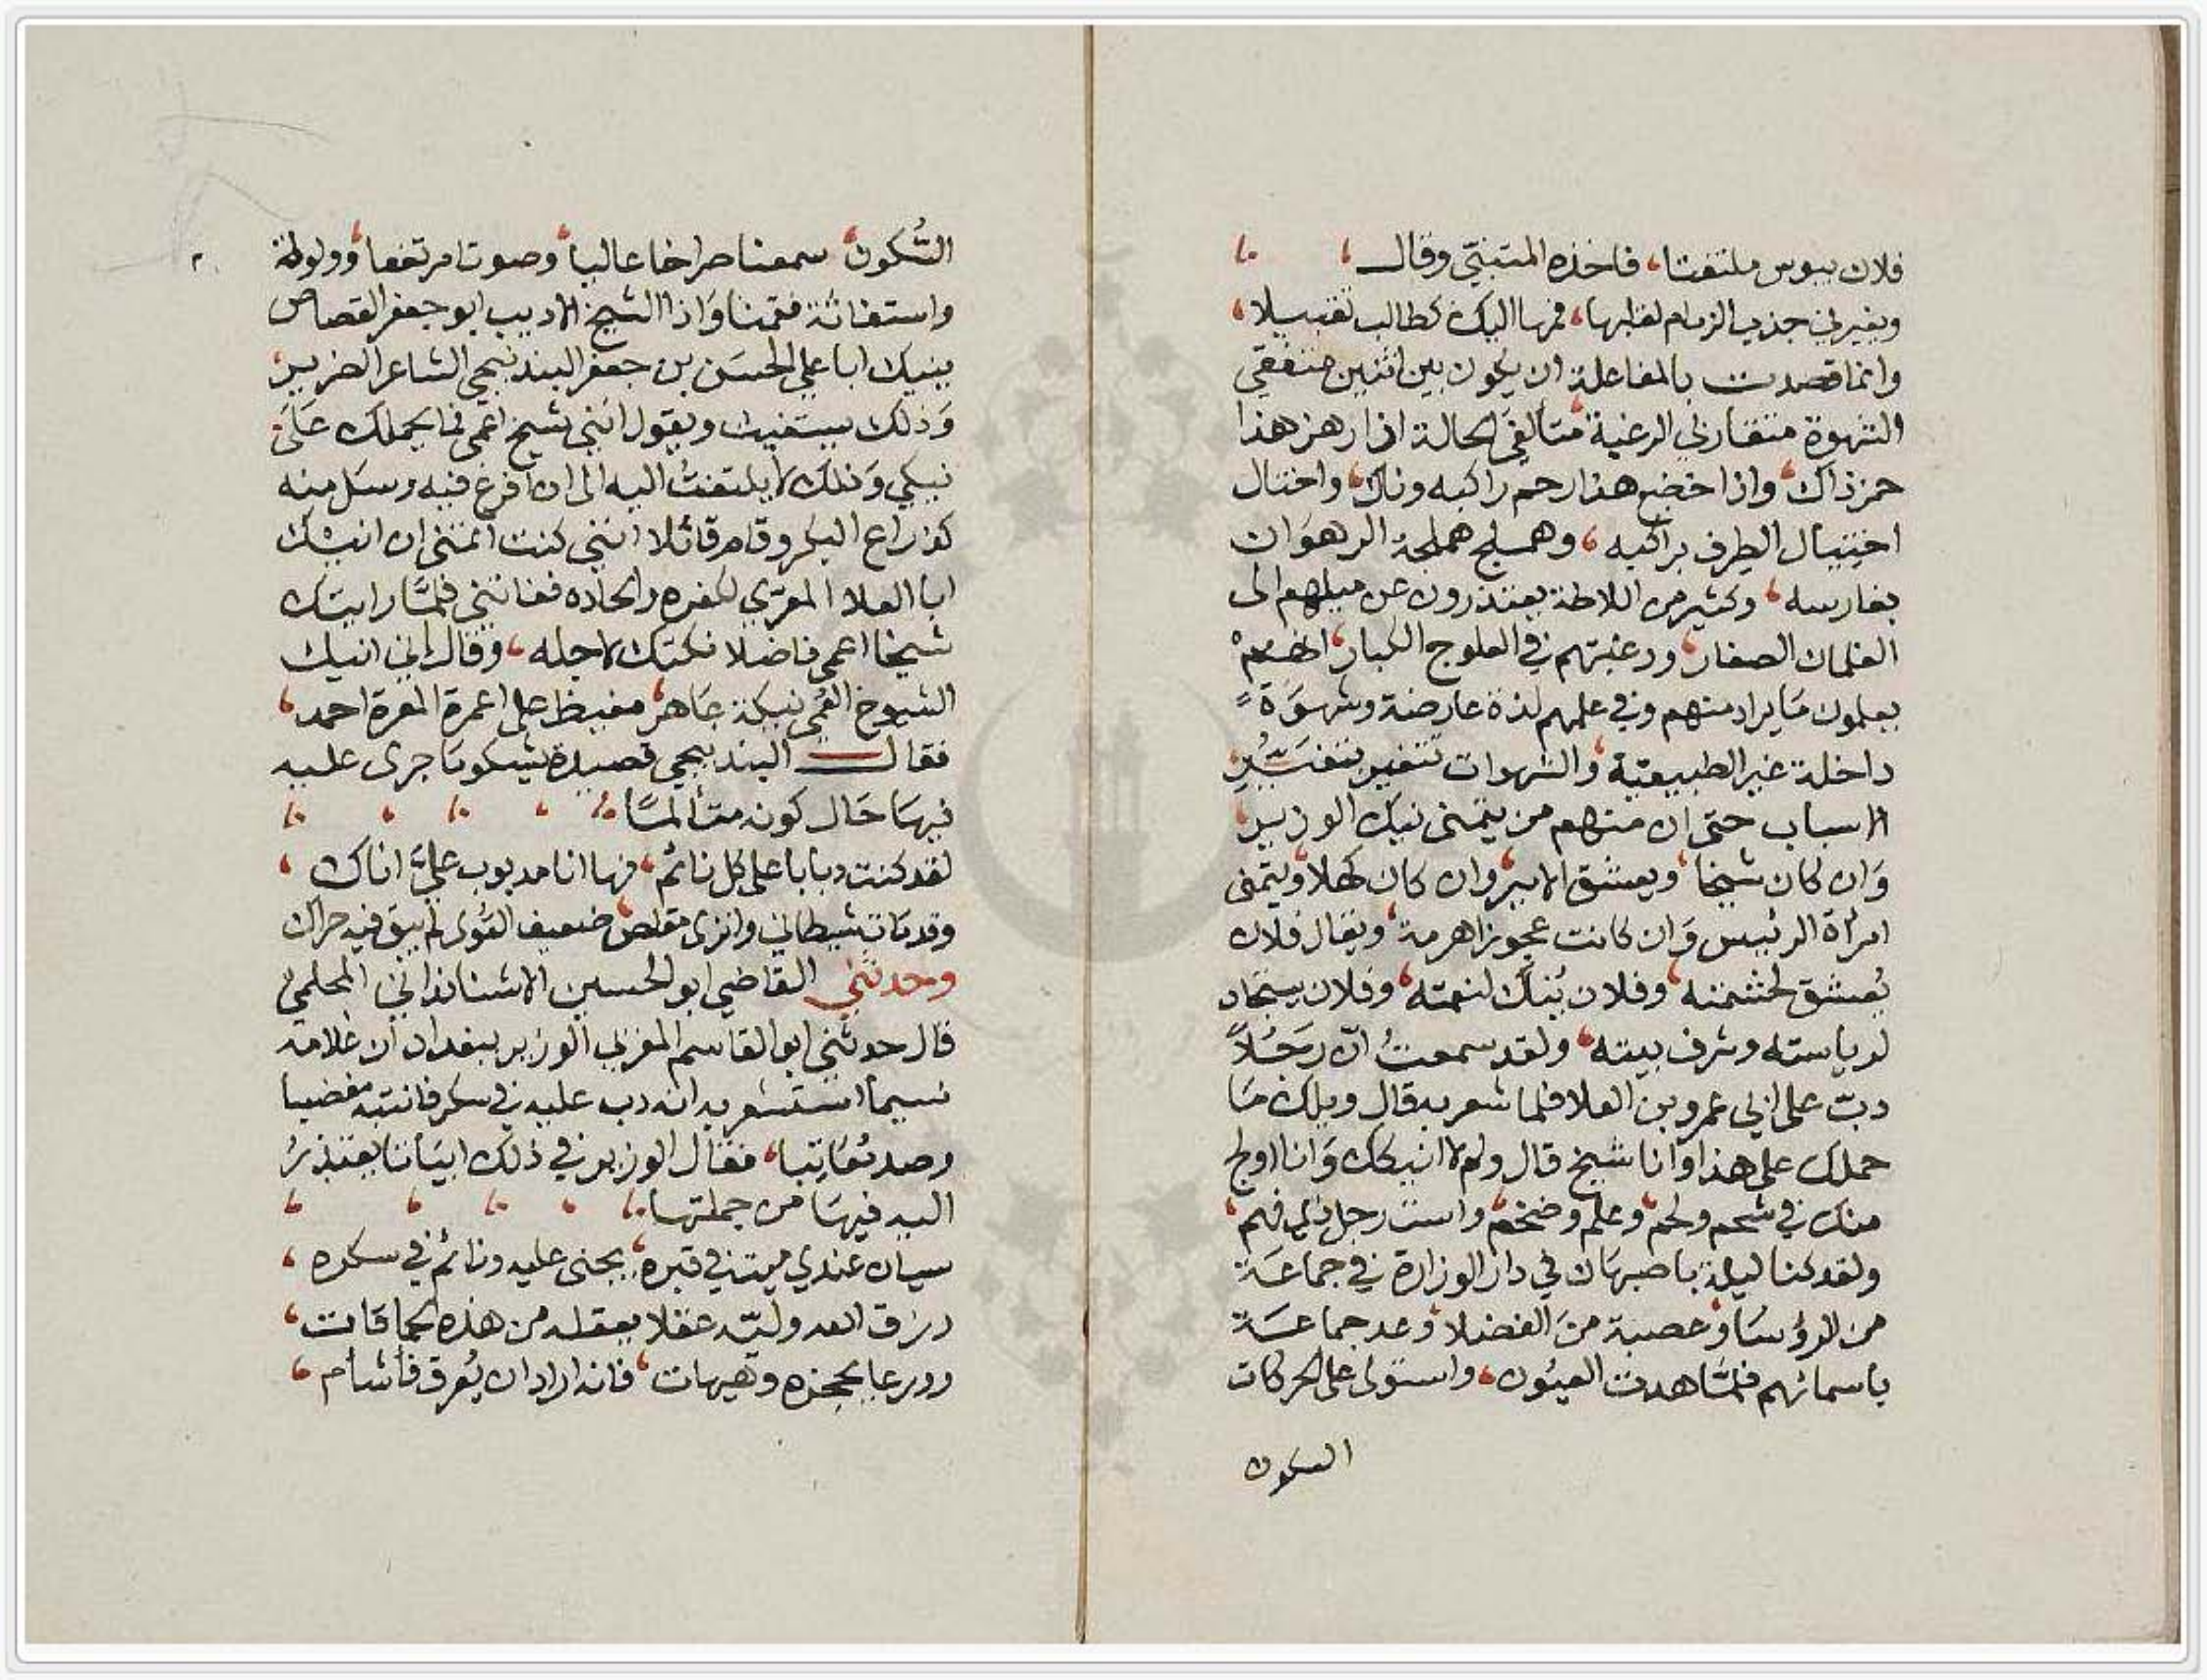 فلان يبوس ملتفتا، فاخذه المتنبي وقال
ويغيرني جذب الزمام لقلبها، فمها اليك كطالب تقبيلا،
وانما قصدت بالمفاعلة ان يكون بين اثنين متفقي
الشهوة متقاربي الرغبة متالفي الحالة اذا رهز هذا
حمز ذاك، واذا خضع هذا رحم راكبه وناك، واختال
اختيال الطرف براكبه، وهملج هملجة الرهوان
بفارسه، وكثير من اللاطة يعتذرون عن ميلهم الى
الغلمان الصغار، ورغبتهم في العلوج الكبار، انهم
يعلمون ما يراد منهم وفي علمهم لذة عارضة وشهوة
داخلة غير الطبيعية، والشهوات تتغير بتغير
الاسباب حتى ان منهم من يتمنى نيك الوزير
وان كان شيخا، ويعشق الامير وان كان كهلا، ويتمنى
امرأة الرئيس وان كانت عجوزا هرمة، ويقال فلان
يُعشق لحشمته، وفلان يُناك لنعمته، وفلان يستجاد
لرياسته وشرف بيته، ولقد سمعتُ انّ رجُلاً
دبّ على ابي عمرو بن العلا فلما شعر به قال ويلك ما
حملك على هذا وانا شيخ قال ولم لا انيكك وانا اولج
منك في شحم ولحم، وعلم وضخم، وانت رجل
ولقد كنا ليلة باصبهان في دار الوزارة في جماعة
من الرؤسا، وعصبة من الفضلا، وعد جماعة
باسمائهم فلما هدت العيُون، واستولى على الحركات
السكون
السُّكون، سمعنا صراخا عاليا، وصوتا مرتفعا، وولولة
واستغاثة فقمنا واذا الشيخ الاديب ابو جعفر القصاص
ينيك ابا علي الحسن بن جعفر البندنيجي الشاعر الضرير،
وذلك يستغيث ويقول انني شيخ اعمى فما يحملك على
نيكي وذلك لا يلتفتُ اليه الى ان افرغ فيه وسل منه
كذراع البكر وقام قائلا انني كنت اتمنى ان انيك
ابا العلا المعرّي لكفره والحاده ففاتني فلمّا رايتك
شيخا اعمى فاضلا نكتك لاجله، وقال اني انيك
الشيوخ العُمي نيكة عاهر، مغيظ على اعمرة المعرة احمد،
فقال البندنيجي قصيدة يشكو ما جرى عليه
فيها حال كونه متألمًا
لقد كنت دبابا على كل نائم، فها انا مدبوب عليّ اناك،
وقد مات شيطاني وانزى مقلص، ضعيف القُوى لم يبق فيه حراك
وحدثني القاضي ابو الحسين الاشناذاني المحلمي
قال حدثني ابو القاسم المغربي الوزير ببغداد ان غلامه
نسيما استشعر به انه دب عليه في سكر فانتبه مغضبا
وصد مُعَاتِبا، فقال الوزير في ذلك ابياتا يعتذرُ
اليه فيها من جملتها
سيان عندي ميت في قبره، يجنى عليه ونائم في سكره،
رزق الله وليّه عقلا يعقله من هذه الحماقات،
وورعا يحجزه وهيهات، فانه اراد ان يُعرق فأشأم،